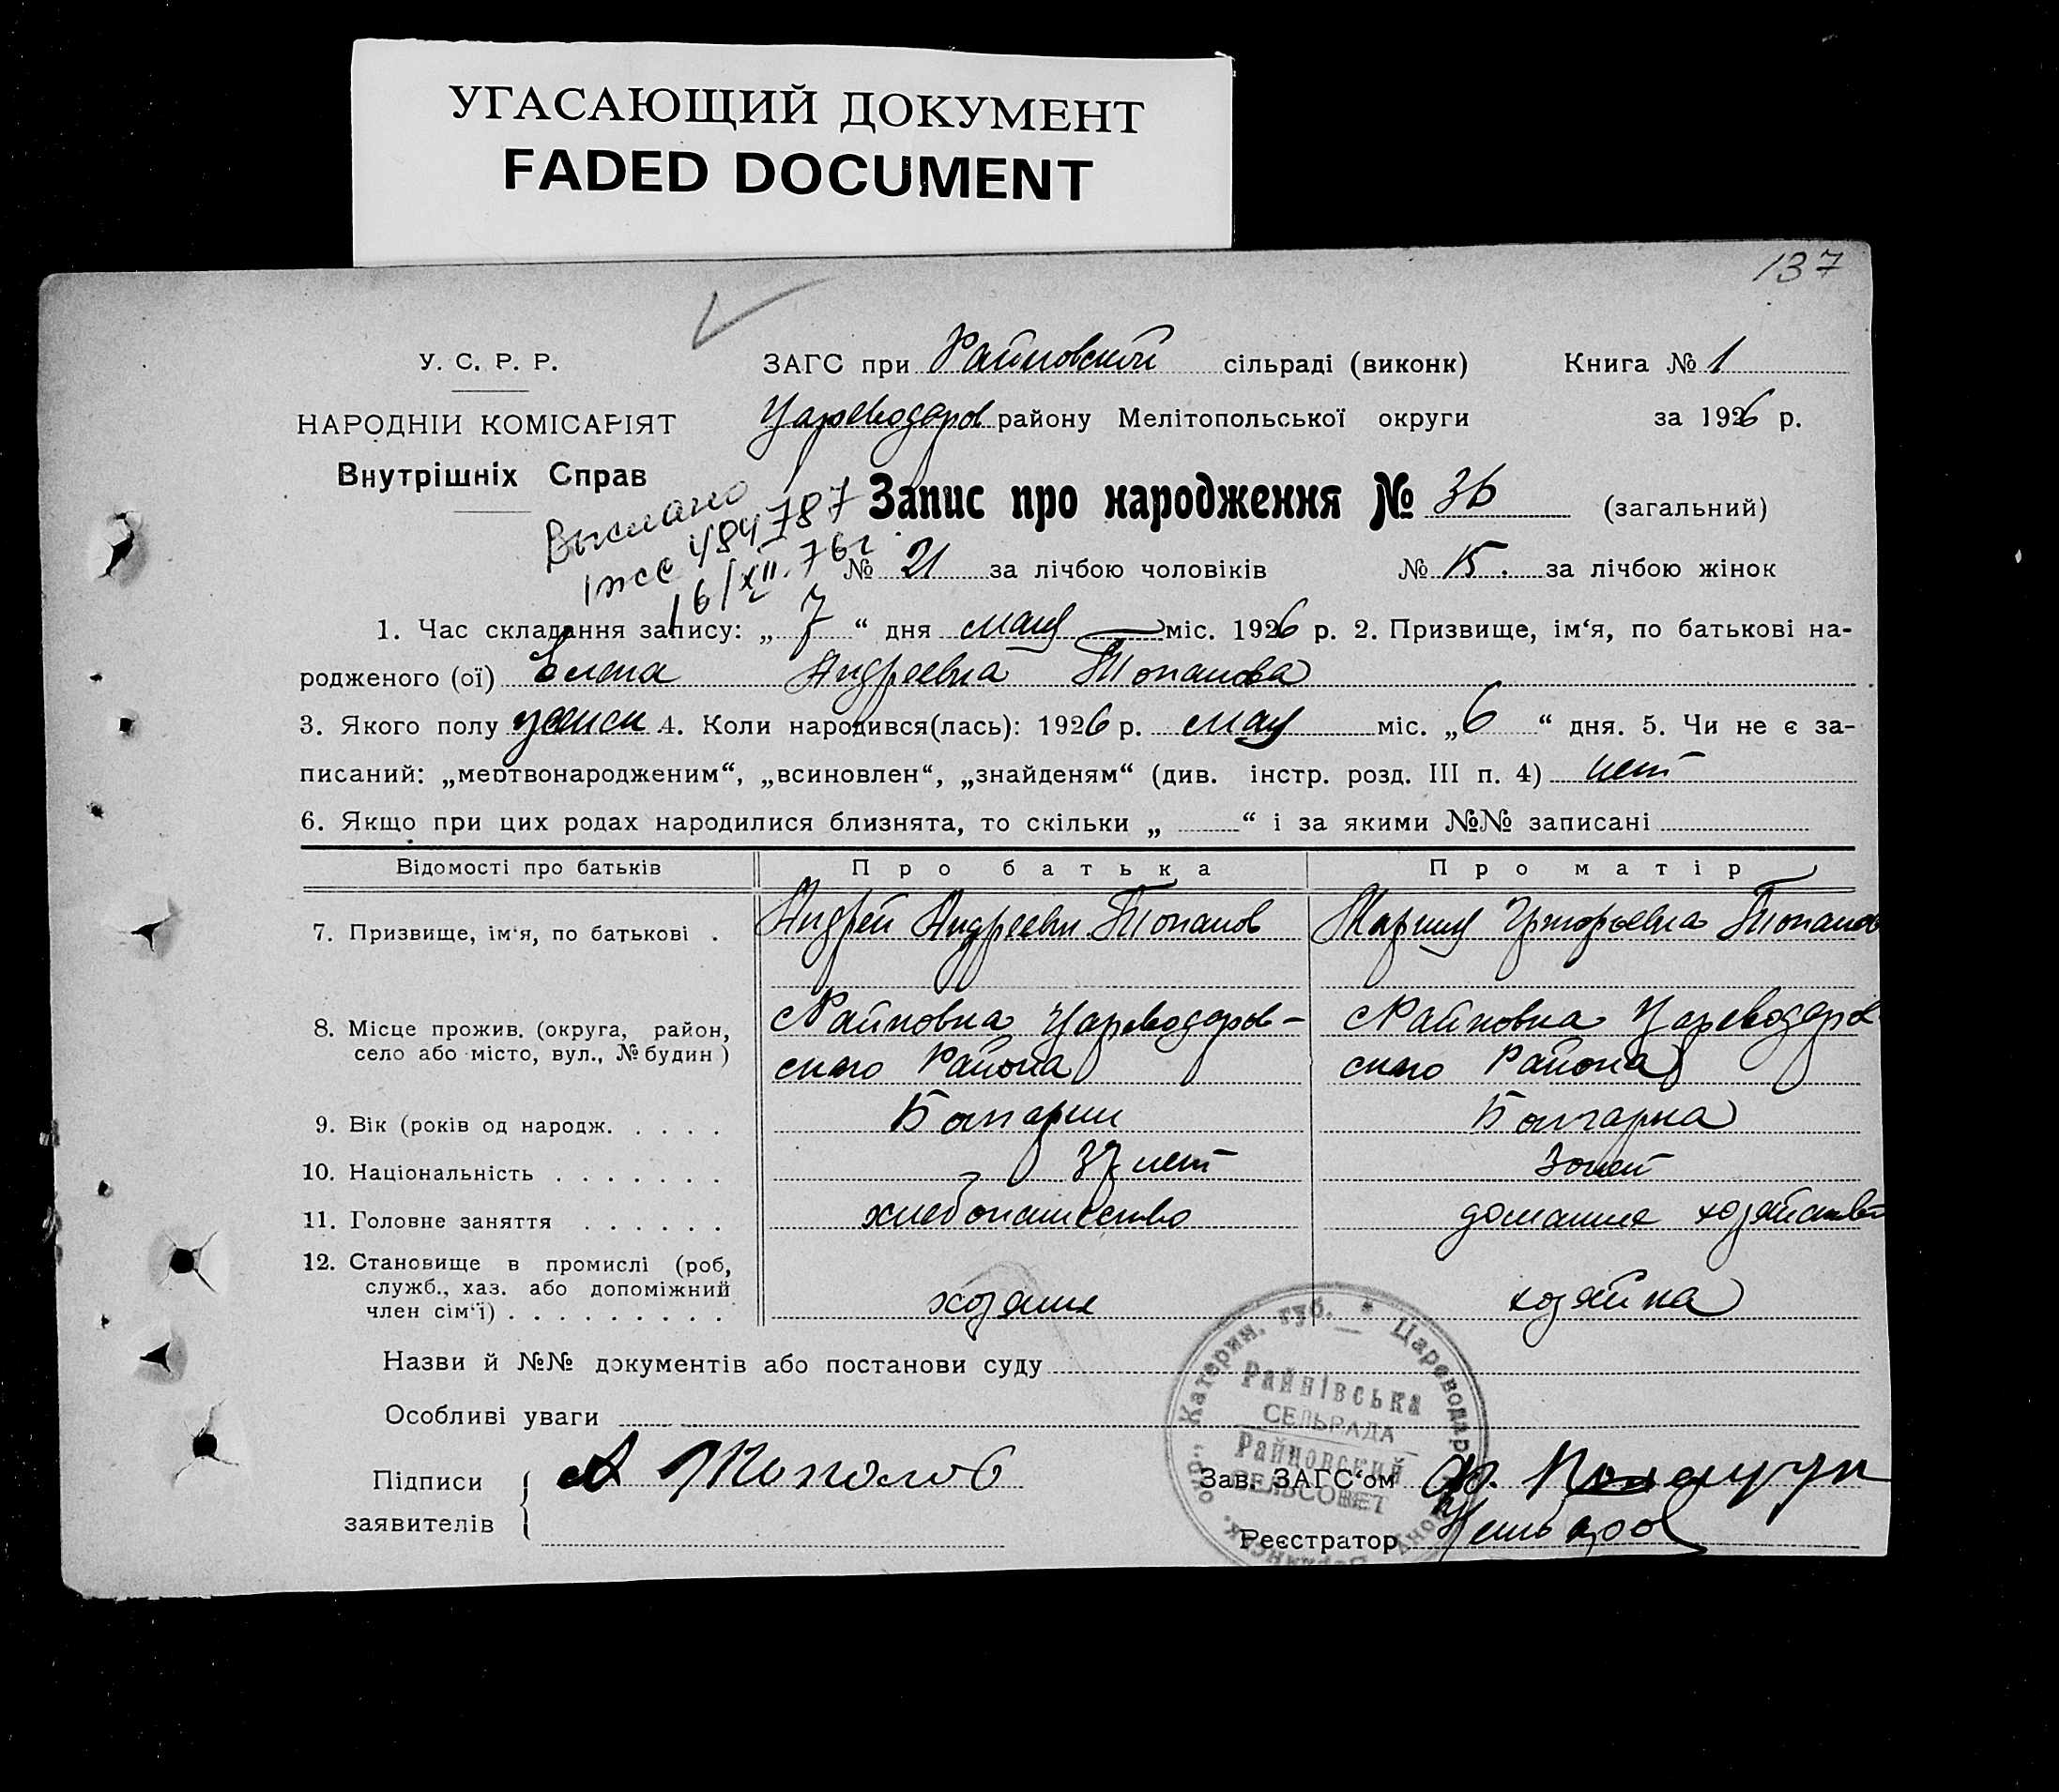 УГАСАЮЩИЙ ДОКУМЕНТ
FADED DOCUMENT
137
У. С. Р. Р.
ЗАГС при Райновской сільраді (виконк) Книга № 1
НАРОДНІЙ КОМІСАРІЯТ
Цареводаров району Мелітопольської округи за 1926 р.
Внутрішніх Справ
Выслано
484787
16/XII.76г.
Запис про народження № 36 (загальний)
№ 21 за лічбою чоловіків № 15. за лічбою жінок
1. Час складання запису: „ 7 “ дня мая міс. 1926 р. 2. Призвище, ім‘я, по батькові на-
родженого (ої) Елена Андреевна Топалова
3. Якого полу 4. Коли народився(лась): 1926 р. мая міс. „ 6 “ дня. 5. Чи не є за-
писаний: „мертвонародженим“, „всиновлен“, „знайденям“ (див. інстр. розд. III п. 4) нет
6. Якщо при цих родах народилися близнята, то скільки „ “ і за якими №№ записані
Відомості про батьків Про батька Про матір
7. Призвище, ім‘я, по батькові . Андрей Андреевич Топалов Мария Григорьевна Топалов
8. Місце прожив. (округа, район, село або місто, вул., № будин ) Райновка Цареводаров-
ского Района
Райновка Цареводаров
ского Района
9. Вік (років од народж. . . . . Болгарин Болгарка
10. Національність . . . . . . . 37 лет 30 лет
11. Головне заняття . . . . . . хлебопашество домашне хозяйство
12. Становище в промислі (роб,
служб., хаз. або допоміжний
член сім‘ї) . . . . . . . . . хозяин хозяйка
Назви й №№ документів або постанови суду
Особливі уваги
Катерин. губ. * Цареводар
Райнівська
СЕЛЬРАДА
Райновский
СЕЛЬСОВЕТ
Підписи
заявителів
А Топалов
Зав. ЗАГС‘ом
Реєстратор